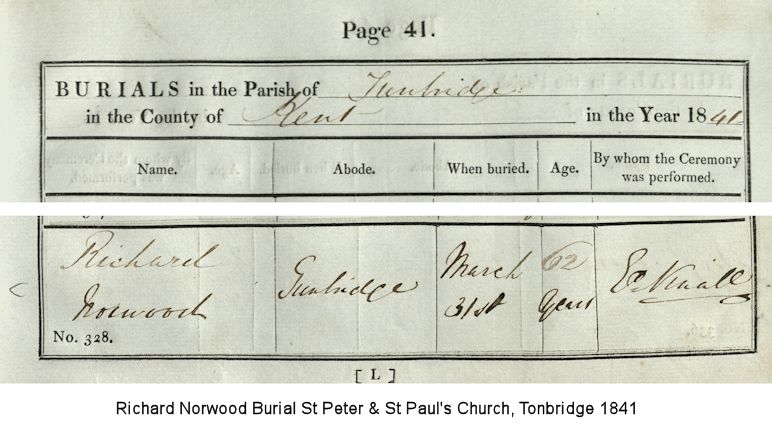 Page 41.
BURIALS in the Parish of Tunbridge
in the County of Kent in the Year 1841
Name. Abode. When buried. Age. By whom the Ceremony was performed.
Richard Norwood Tunbridge March 31st 62 Years
No. 328.
[L]
Richard Norwood Burial St Peter & St Paul's Church, Tonbridge 1841